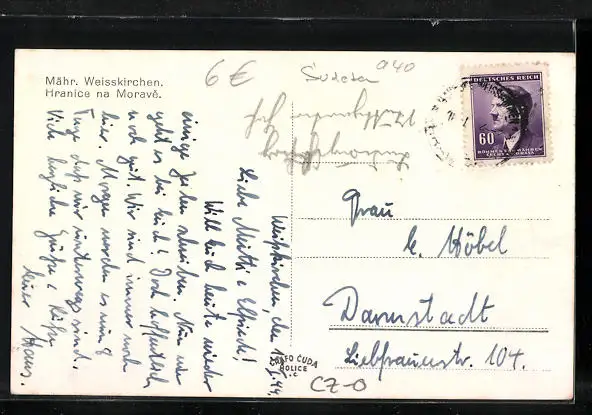 Mähr. Weisskirchen.
Hranice na Moravě.
6 €
Sudeten
940
DEUTSCHES REICH
60
BÖHMEN UND MÄHREN
ČECHY A MORAVA
Weißkirchen, den
Liebe Mutti & Elfriede!
Will Euch heute wieder
einige Zeilen schreiben. Nun wie
geht es bei Euch? Doch hoffentlich
noch gut. Wir sind immer noch
hier. Morgen werden es nun 8
Tage daß wir unterwegs sind.
Viele herzliche Grüße & Küsse
Euer Hans.
Frau
E. Höbel
Darmstadt
Liebfrauenstr. 104.
FO ČUDA
HOLICE
CZ-O